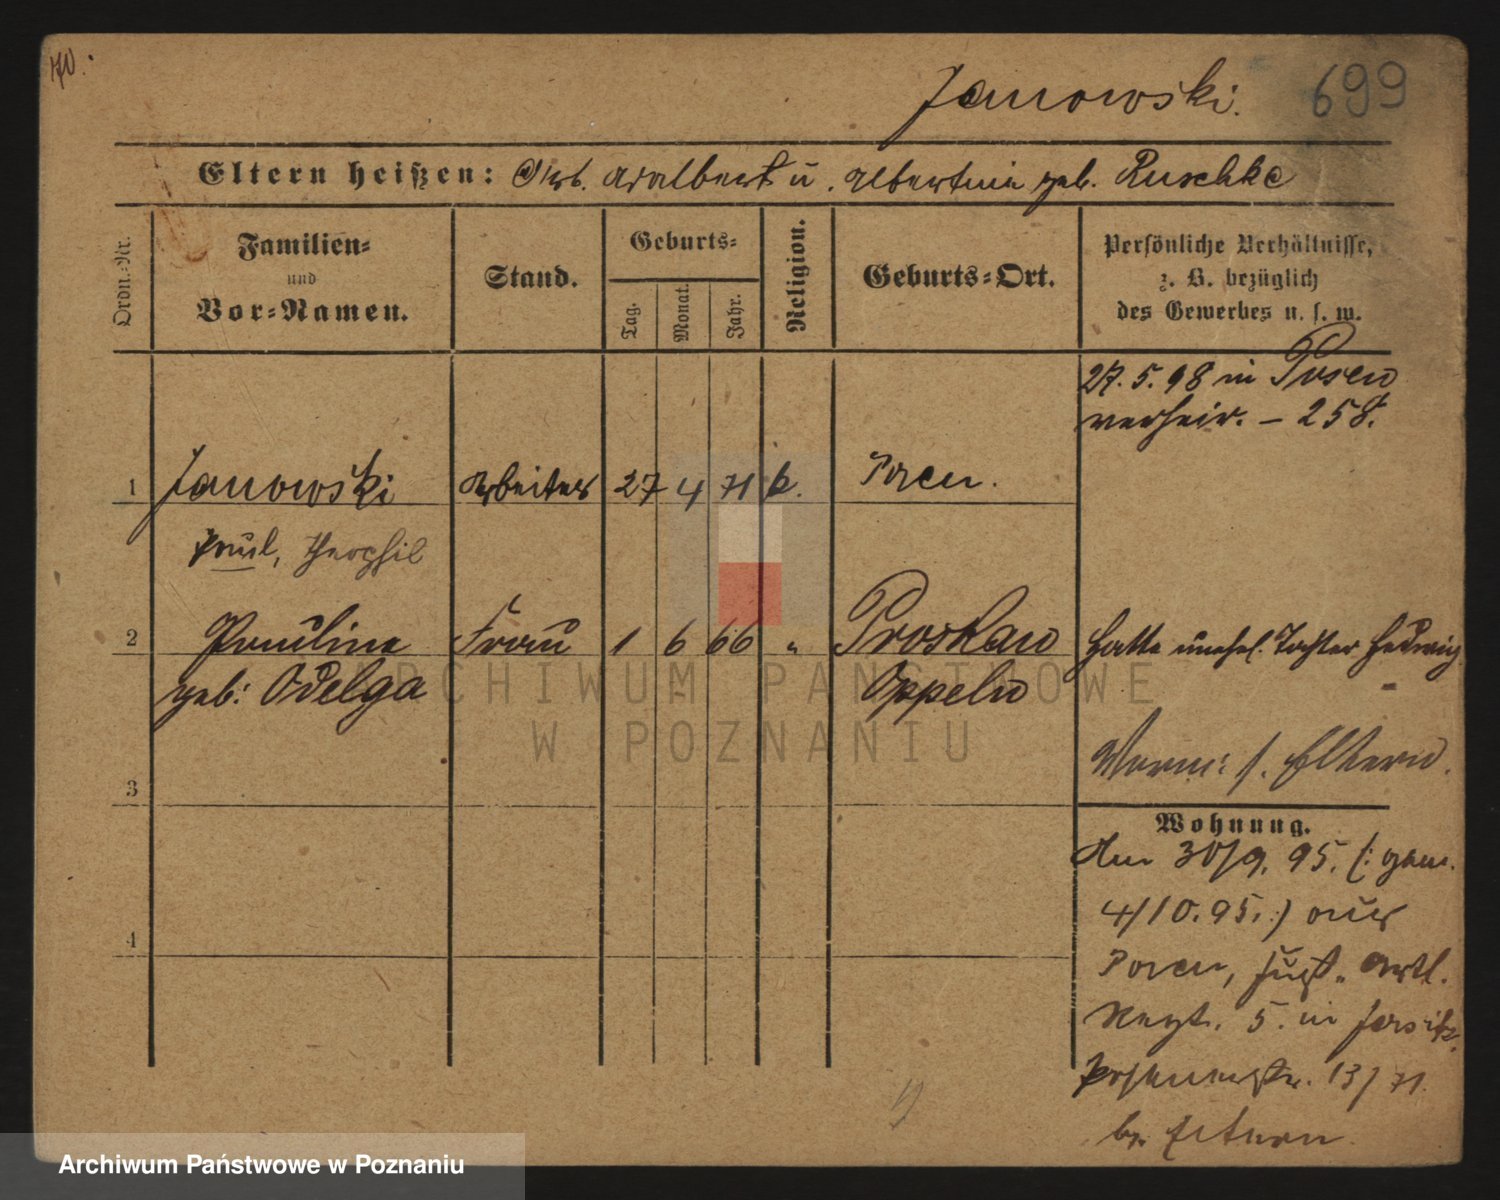 70.
Janowski.
699
Eltern heißen: Arb. Adalbert u. Albertine geb. Ruschke
Ordn.-Nr.
Familien-
und
Vor-Namen.
Stand.
Geburts-
Tag.
Monat.
Jahr.
Religion.
Geburts-Ort.
Persönliche Verhältnisse,
z. B. bezüglich
des Gewerbes u. s. w.
27. 5. 98 in Posen
verheir. – 258.
1 Janowski Arbeiter 27 4 71 k. Posen.
Paul, Theophil
2 Pauline Frau 1 6 66 " Proskau
geb: Odelga Oppeln
hatte unehel. Tochter Hedwig
Vorm: s. Eltern.
3
Wohnung.
Am 30/9. 95. (: gem.
4/10. 95. :) aus
Posen, Fußt. Artl.
Regt. 5. in Jersitz
13/71.
b. Eltern
4
ARCHIWUM PAŃSTWOWE
W POZNANIU
Archiwum Państwowe w Poznaniu